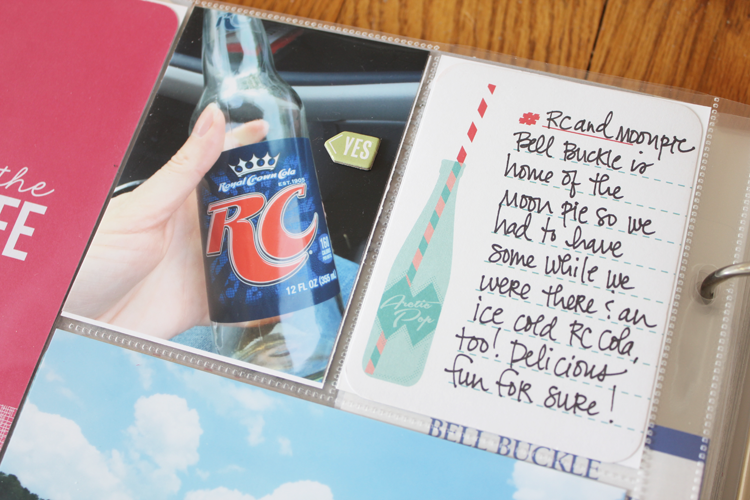 the
FEE
Royal Crown Cola
EST. 1905
RC
12 FL OZ (355 mL)
YES
# RC and moonpie
Bell Buckle is
home of the
moon pie so we
had to have
some while we
were there & an
ice cold RC Cola,
too! Delicious
fun for sure!
Arctic
Pop
BELL BUCKLE